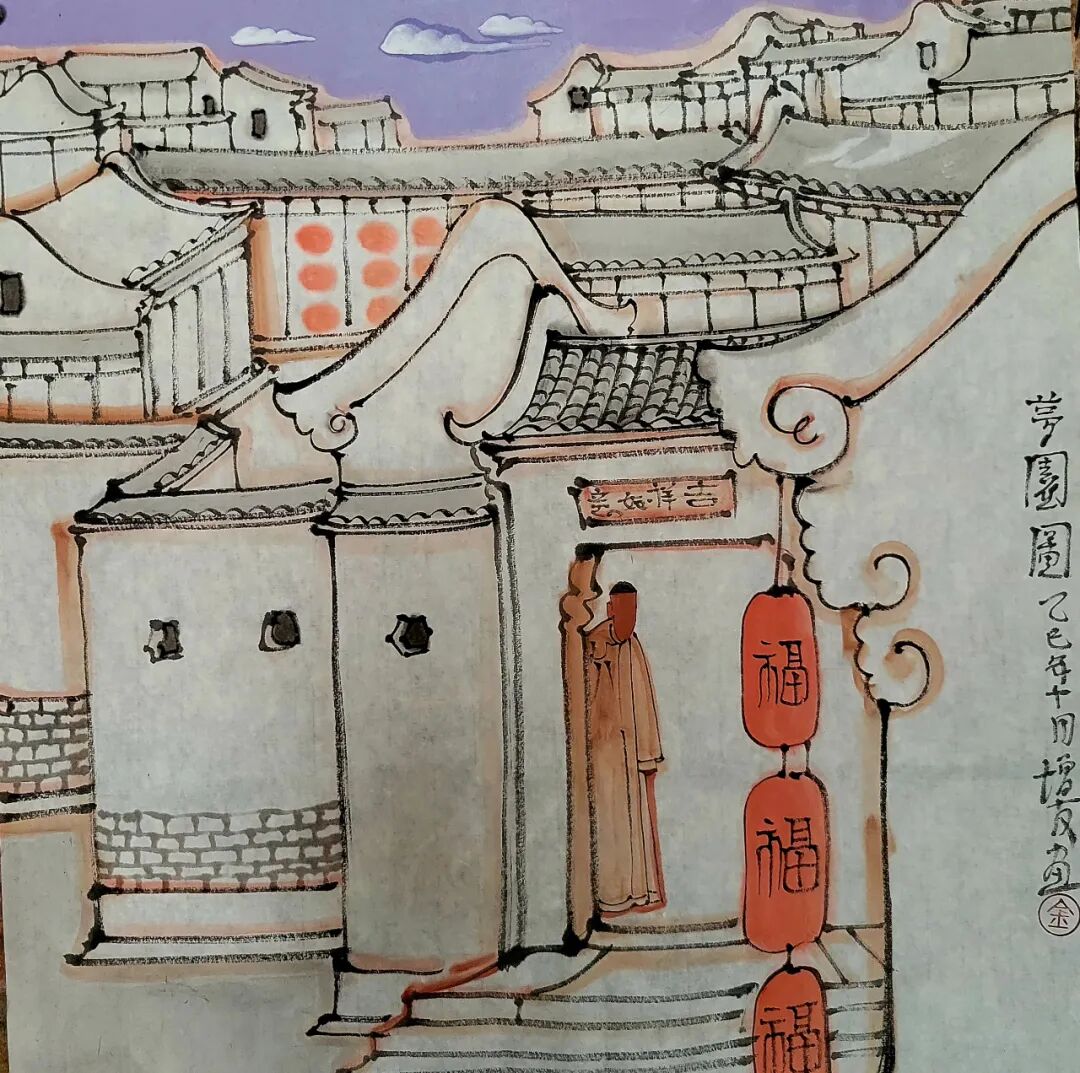 吉祥如意
福
福
福
夢園圖 乙巳年十月增友画
金